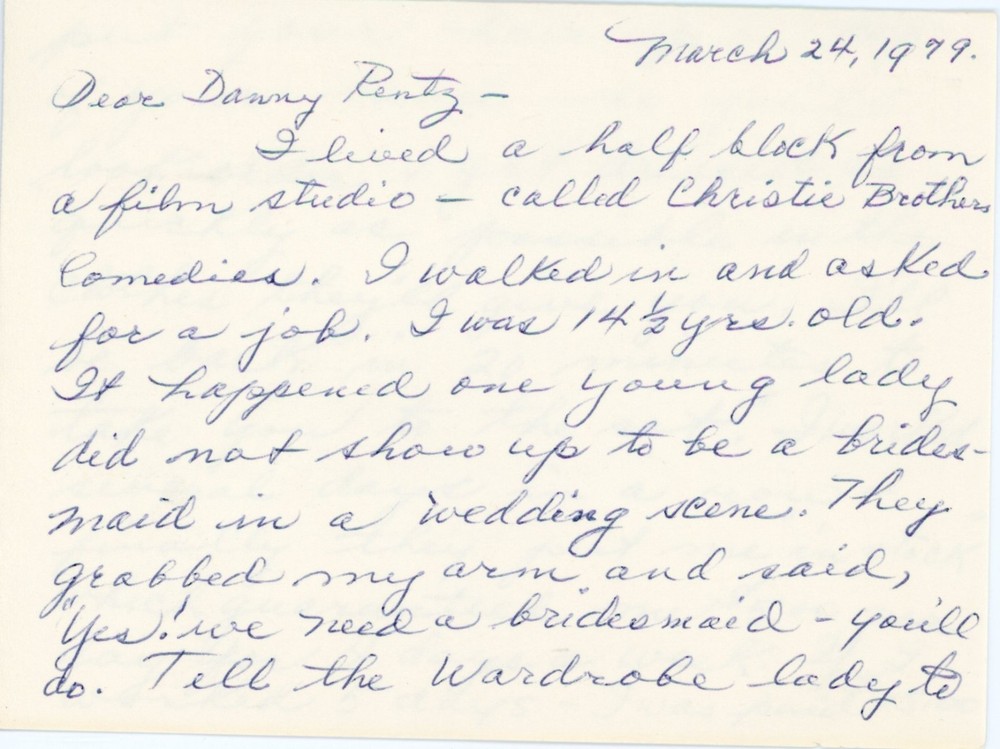 March 24, 1979.
Dear Danny Rentz -
I lived a half block from
a film studio - called Christie Brothers
Comedies. I walked in and asked
for a job. I was 14 ½ yrs. old.
It happened one young lady
did not show up to be a brides-
maid in a wedding scene. They
grabbed my arm and said,
"Yes! we need a bridesmaid - you'll
do. Tell the Wardrobe lady to